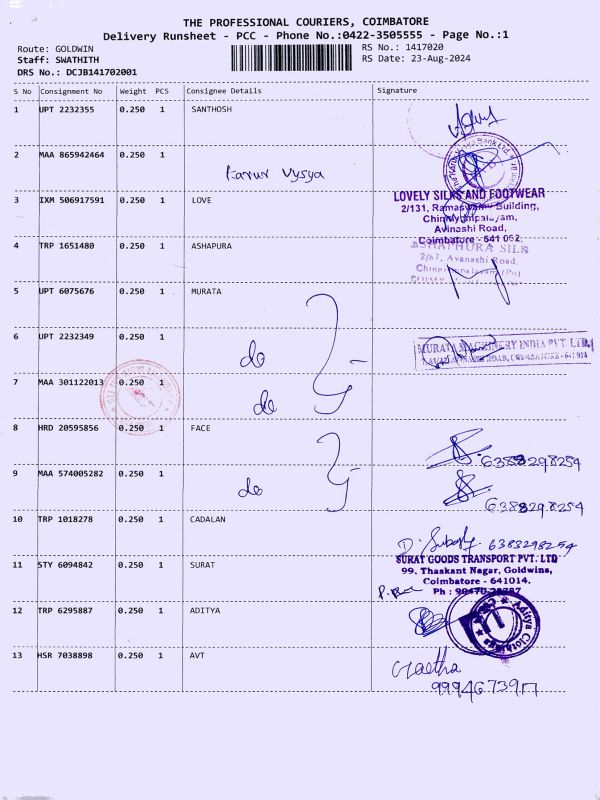 THE PROFESSIONAL COURIERS, COIMBATORE
Delivery Runsheet - PCC - Phone No.:0422-3505555 - Page No.:1
Route: GOLDWIN RS No.: 1417020
Staff: SWATHITH RS Date: 23-Aug-2024
DRS No.: DCJB141702001
S No Consignment No Weight PCS Consignee Details Signature
1 UPT 2232355 0.250 1 SANTHOSH
2 MAA 865942464 0.250 1
Karur Vysya
3 IXM 506917591 0.250 1 LOVE
LOVELY SILKS AND FOOTWEAR
2/131, Ramaswamy Building,
Chinniyampalayam,
Avinashi Road,
Coimbatore - 641 062.
4 TRP 1651480 0.250 1 ASHAPURA
ASHAPHURA SILK
2/67, Avanashi Road,
5 UPT 6075676 0.250 1 MURATA
6 UPT 2232349 0.250 1
do
MURATA MACHINERY INDIA PVT. LTD.
7 MAA 301122013 0.250 1
do
8 HRD 20595856 0.250 1 FACE
6383298254
9 MAA 574005282 0.250 1
do
6383298254
10 TRP 1018278 0.250 1 CADALAN
6383298254
11 STY 6094842 0.250 1 SURAT
SURAT GOODS TRANSPORT PVT. LTD
99, Thaskant Nagar, Goldwins,
Coimbatore - 641014.
12 TRP 6295887 0.250 1 ADITYA
Aditya Clothings
13 HSR 7038898 0.250 1 AVT
Geetha